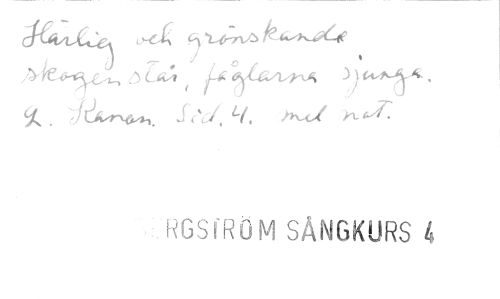 Härlig och grönskande
skogen står, fåglarna sjunga.
2. Kanon. Sid. 4. mel not.
BERGSTRÖM SÅNGKURS 4